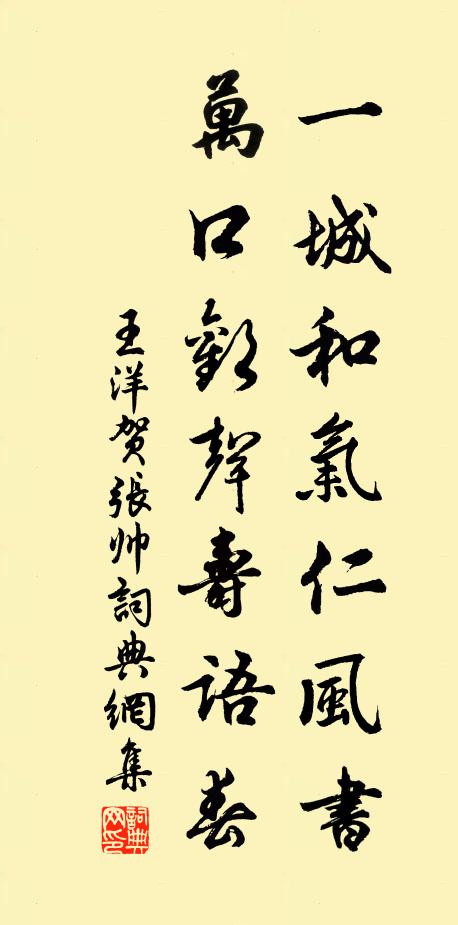 一城和氣仁風書
萬口歡聲壽語春
王洋賀張帅詞典網集
詞典网印